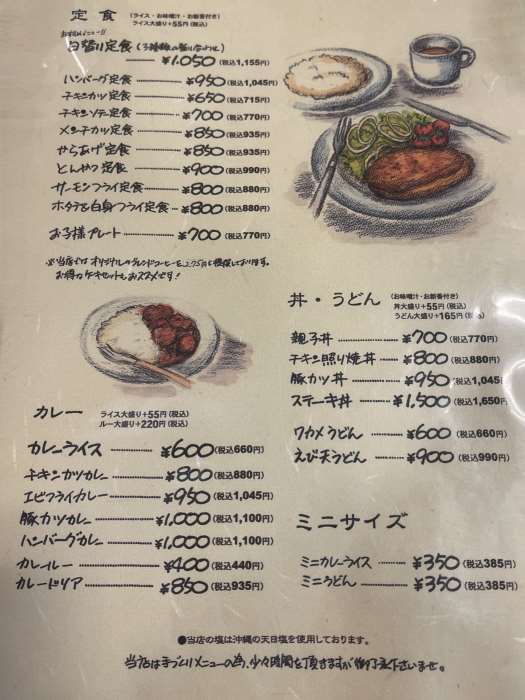 定食 (ライス・お味噌汁・お新香付き)
ライス大盛り+55円(税込)
おすすめメニュー!!
日替り定食
¥1,050(税込1,155円)
ハンバーグ定食 ¥950(税込1,045円)
チキンカツ定食 ¥650(税込715円)
チキンソテー定食 ¥700(税込770円)
メンチカツ定食 ¥850(税込935円)
からあげ定食 ¥850(税込935円)
とんかつ定食 ¥900(税込990円)
サーモンフライ定食 ¥800(税込880円)
ホタテ&白身フライ定食 ¥800(税込880円)
お子様プレート ¥700(税込770円)
※当店では オリジナルのブレンドコーヒーを275円で提供しております。
お得なケーキセットもおススメです!
カレー ライス大盛り+55円(税込)
ルー大盛り+220円(税込)
カレーライス ¥600(税込660円)
チキンカツカレー ¥800(税込880円)
エビフライカレー ¥950(税込1,045円)
豚カツカレー ¥1,000(税込1,100円)
ハンバーグカレー ¥1,000(税込1,100円)
カレールー ¥400(税込440円)
カレードリア ¥850(税込935円)
丼・うどん (お味噌汁・お新香付き)
丼大盛り+55円(税込)
うどん大盛り+165円(税込)
親子丼 ¥700(税込770円)
チキン照り焼丼 ¥800(税込880円)
豚カツ丼 ¥950(税込1,045円)
ステーキ丼 ¥1,500(税込1,650円)
ワカメうどん ¥600(税込660円)
えび天うどん ¥900(税込990円)
ミニサイズ
ミニカレーライス ¥350(税込385円)
ミニうどん ¥350(税込385円)
●当店の塩は沖縄の天日塩を使用しております。
当店は手づくりメニューの為、少々時間を頂きますが御了承下さいませ。